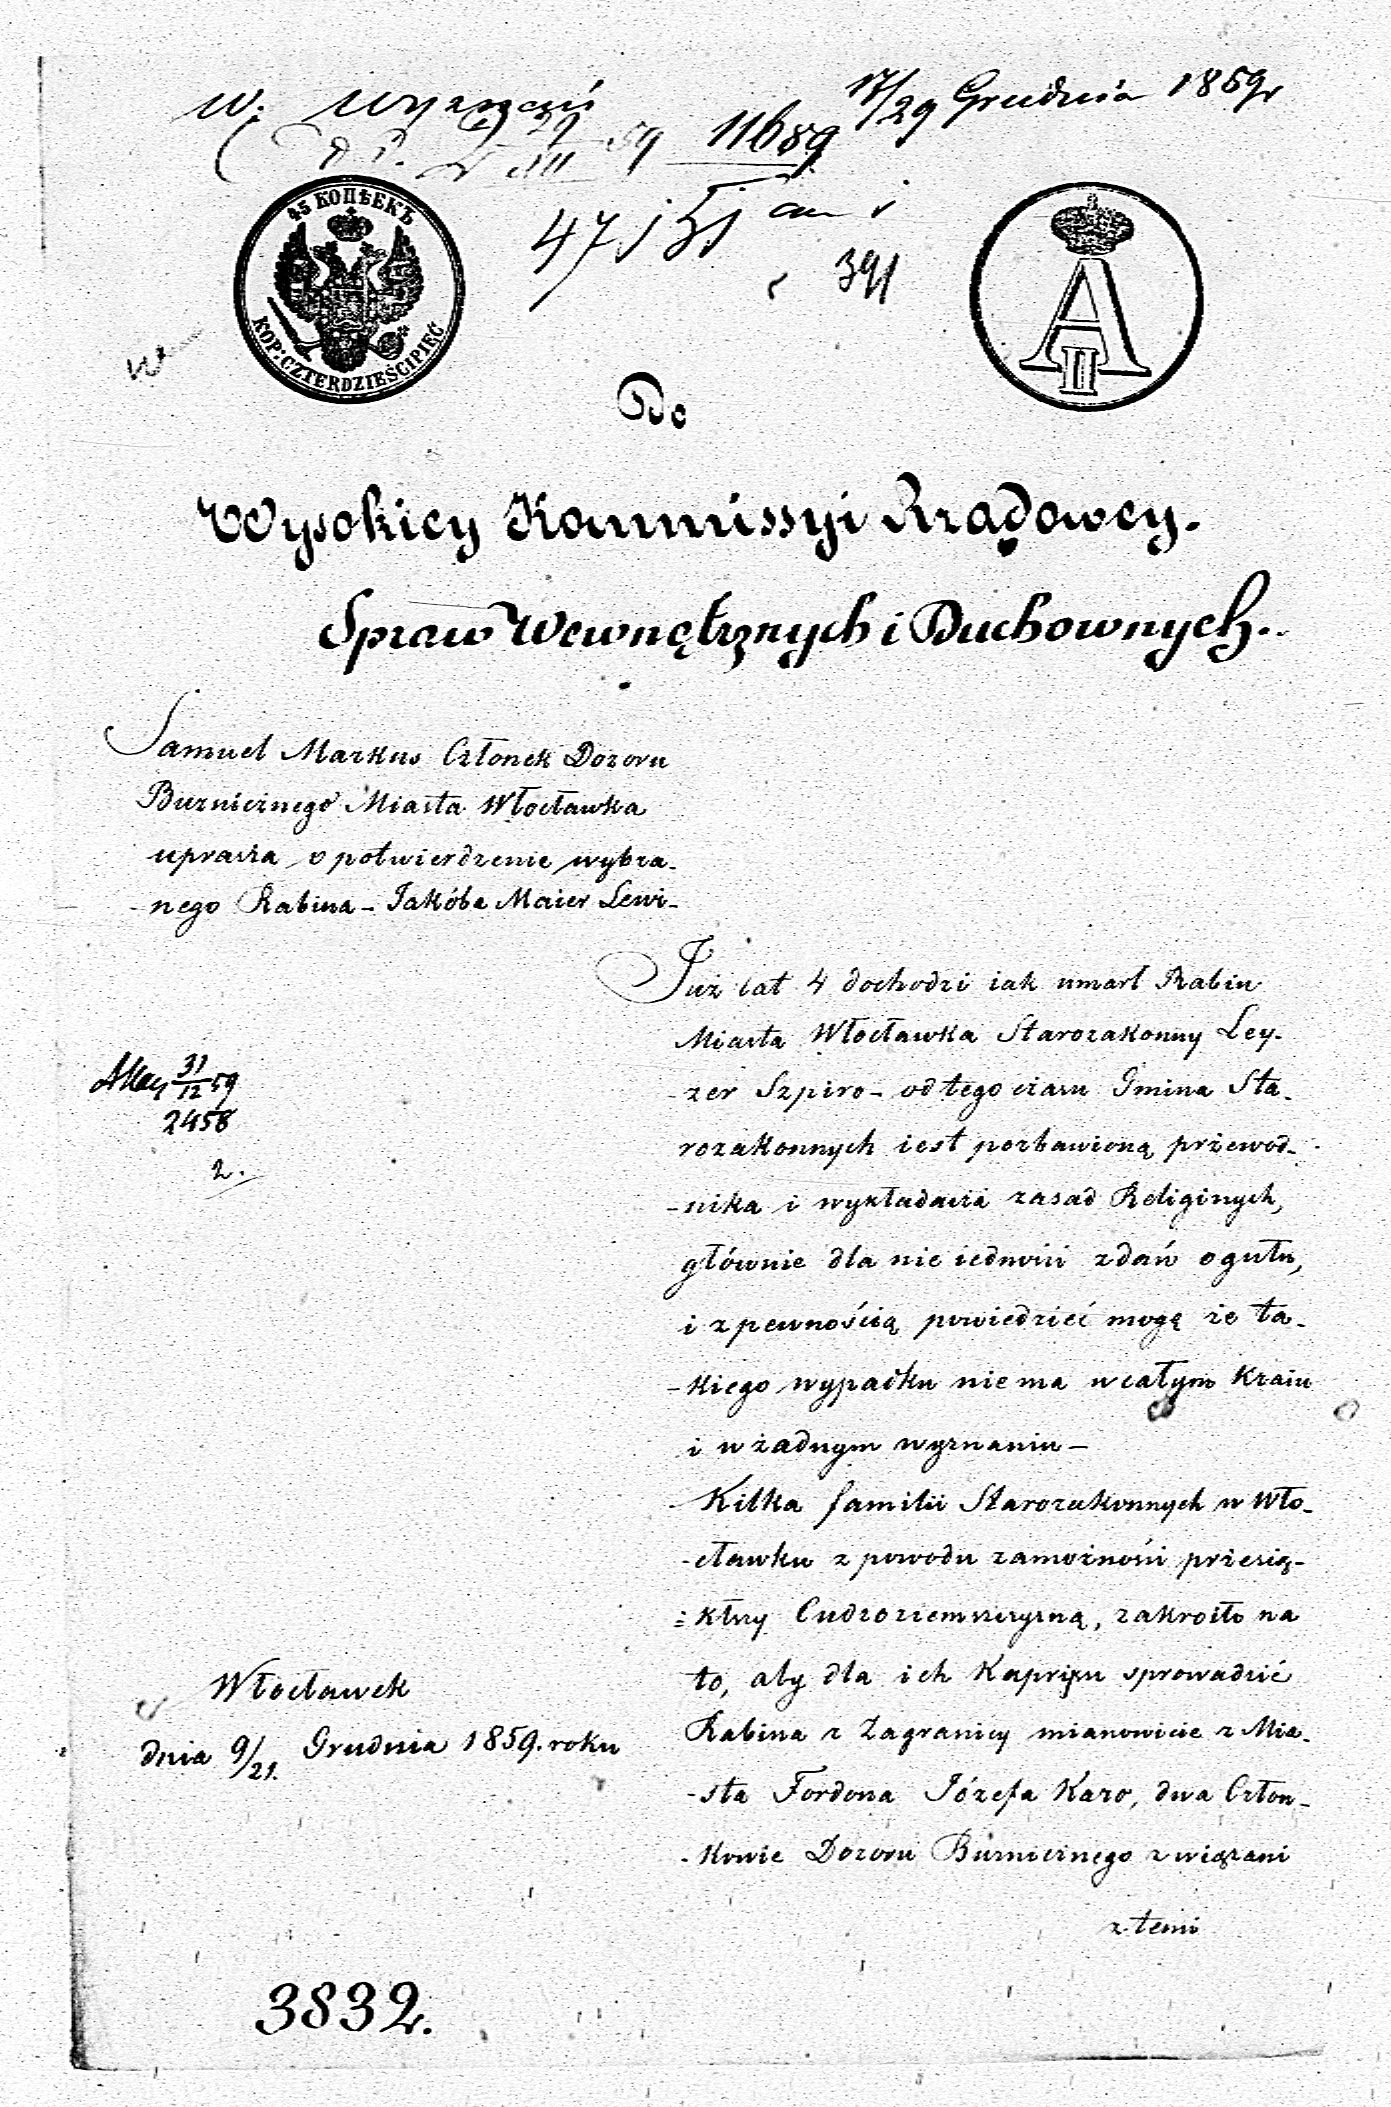 W. wyznań
17/29 Grudnia 1859r
11689
47151
391
45 КОПѢЕКЪ
KOP: CZTERDZIEŚCI PIĘĆ
A II
Do
Wysokiey Kommissyi Rządowey.
Spraw Wewnętrznych i Duchownych.
Samuel Markus Członek Dozoru
Buznicznego Miasta Włocławka
uprasza o potwierdzenie wybra-
-nego Rabina - Jakóba Maier Lewi-
Już lat 4 dochodzi iak umarł Rabin
Miasta Włocławka Starozakonny Ley-
-zer Szpiro - od tego czasu Gmina Sta-
rozakonnych iest pozbawioną przewod-
-nika i wykładacza zasad Religinych,
głównie dla nie iedności zdań ogułu,
i z pewnością powiedzieć mogę że ta-
-kiego wypadku nie ma w całym Kraiu
i w żadnym wyznaniu -
31/12 59
2458
2.
Kilka familii Starozakonnych w Wło-
-cławku z powodu zamożności przesią-
-kłszy Cudzoziemszczyzną, zakroiło na
to, aby dla ich Kaprizu sprowadzić
Rabina z Zagranicy mianowicie z Mia-
-sta Fordona Józefa Karo, dwa Człon-
-kowie Dozoru Buznicznego związani
z temi
Włocławek
dnia 9/21. Grudnia 1859. roku
3832.